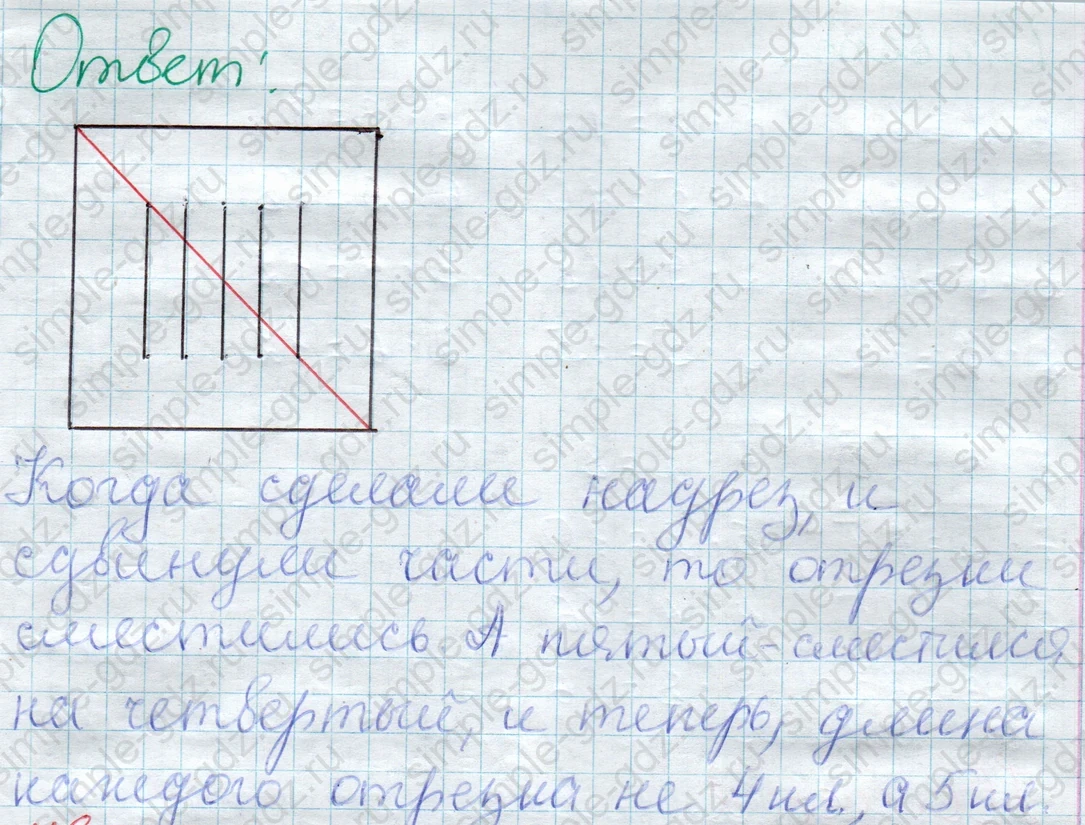 Ответ:
Когда сделали надрез, и
сдвинули части, то отрезки
сместились. А пятый-сместился
на четвертый, и теперь, длина
каждого отрезка не 4 кл., а 5 кл.
simple-gdz.ru